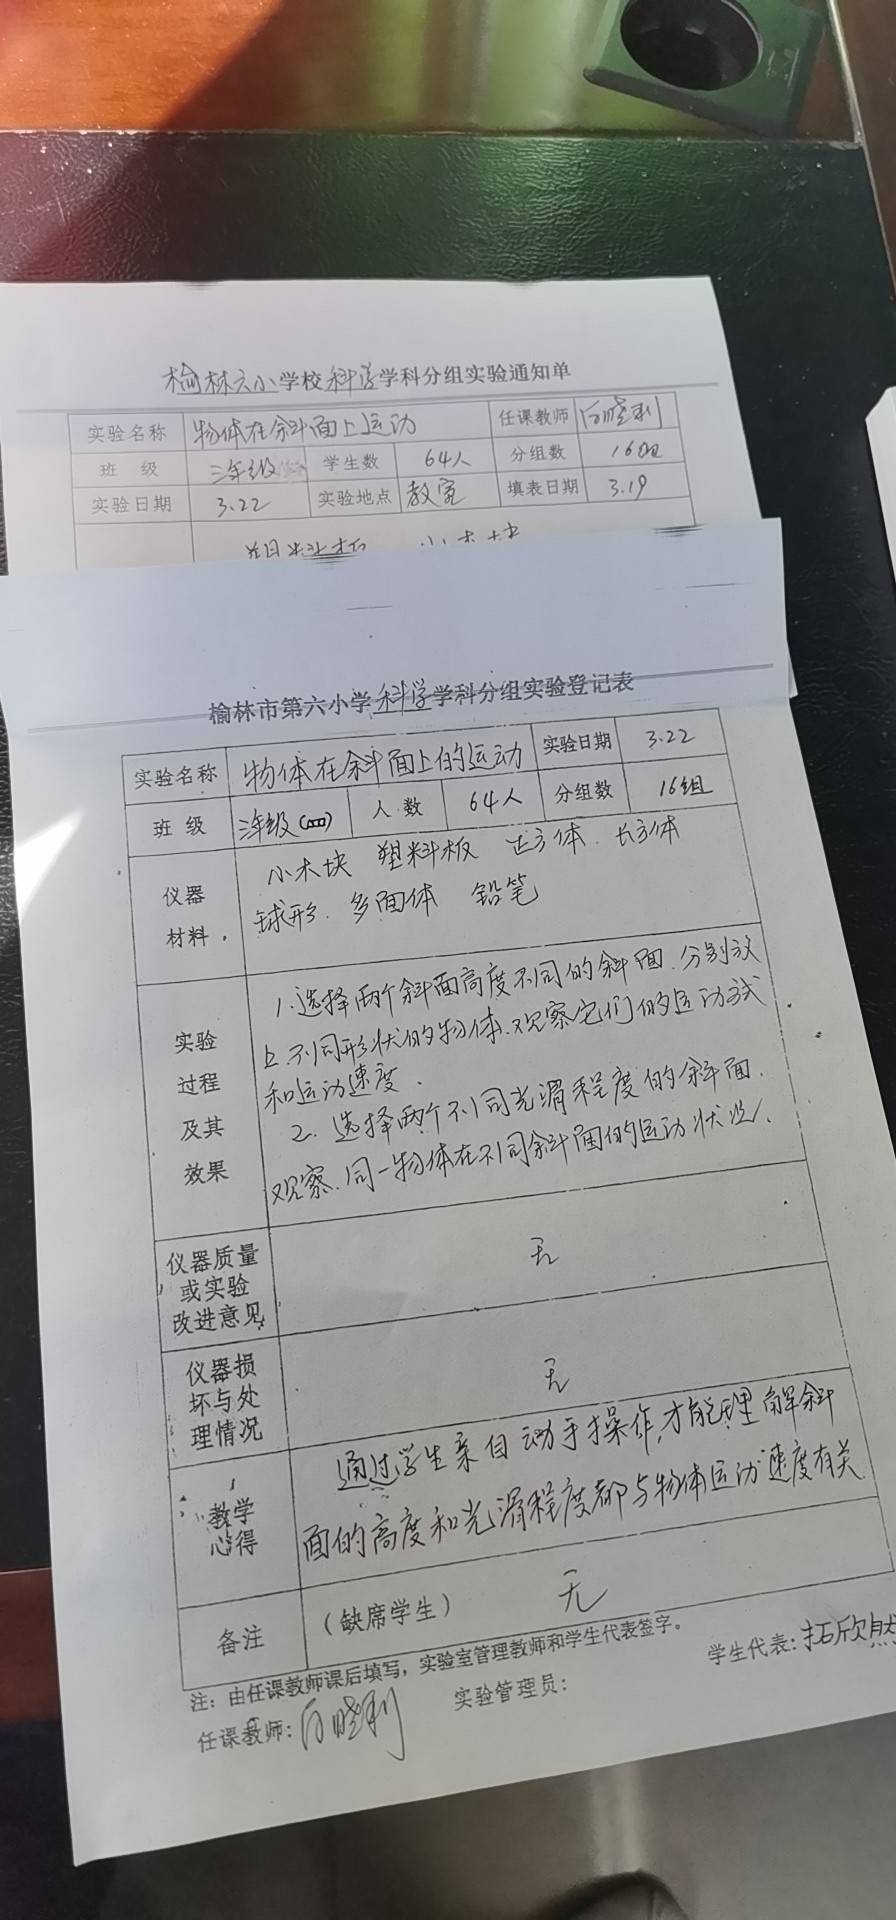 榆林六小学校科学学科分组实验通知单
实验名称 物体在斜面上运动 任课教师 白晓利
班 级 三年级 学生数 64人 分组数 16组
实验日期 3.22 实验地点 教室 填表日期 3.19
榆林市第六小学科学学科分组实验登记表
实验名称 物体在斜面上的运动 实验日期 3.22
班 级 三年级 人 数 64人 分组数 16组
仪器
材料
小木块 塑料板 正方体. 长方体
球形. 多面体 铅笔
实验
过程
及其
效果
1.选择两个斜面高度不同的斜面.分别放
上不同形状的物体.观察它们的运动方式
和运动速度.
2. 选择两个不同光滑程度的斜面.
观察.同一物体在不同斜面的运动状况.
仪器质量
或实验
改进意见
无
仪器损
坏与处
理情况
无
教学
心得
通过学生亲自动手操作,才能理解斜
面的高度和光滑程度都与物体运动速度有关
备注 (缺席学生) 无
注：由任课教师课后填写，实验室管理教师和学生代表签字。
任课教师:白晓利 实验管理员: 学生代表:拓欣然